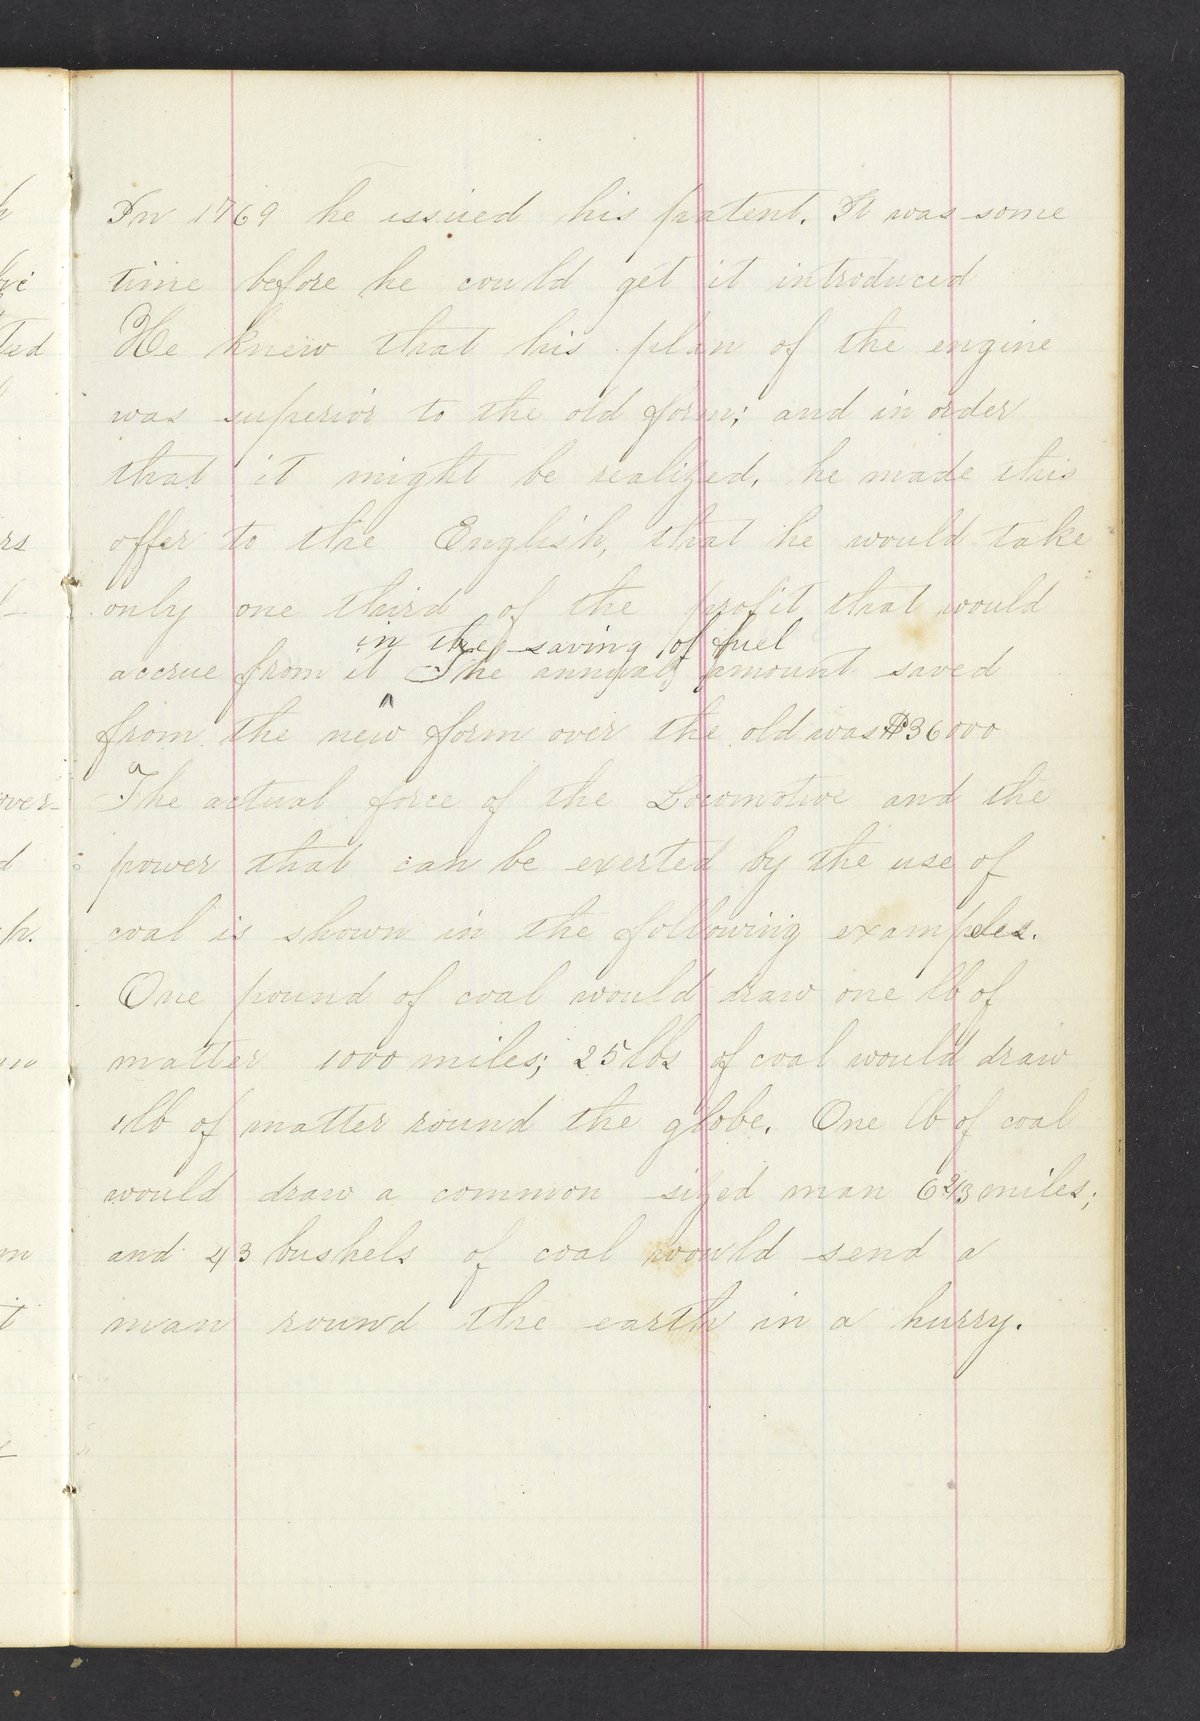 In 1769 he issued his patent. It was some
time before he could get it introduced
He knew that his plan of the engine
was superior to the old form; and in order
that it might be realized, he made this
offer to the English, that he would take
only one third of the profit that would
in the saving of fuel
accrue from it ^ The annual amount saved
from the new form over the old was $36000
The actual force of the Locomotive and the
power that can be exerted by the use of
coal is shown in the following examples.
One pound of coal would draw one lb of
matter 1000 miles; 25 lbs of coal would draw
1lb of matter round the globe. One lb of coal
would draw a common sized man 6 2/3 miles;
and 43 bushels of coal would send a
man round the earth in a hurry.